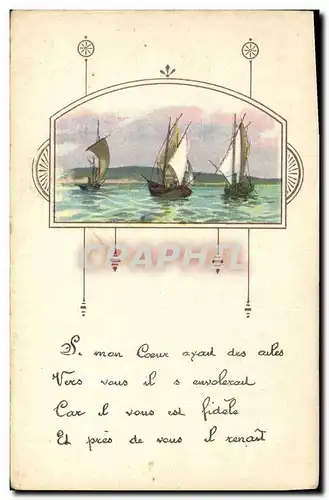 CPAPHIL
Si mon Coeur ayait des ailes
Vers vous il s envolerait
Car il vous est fidèle
Et près de vous il renaît